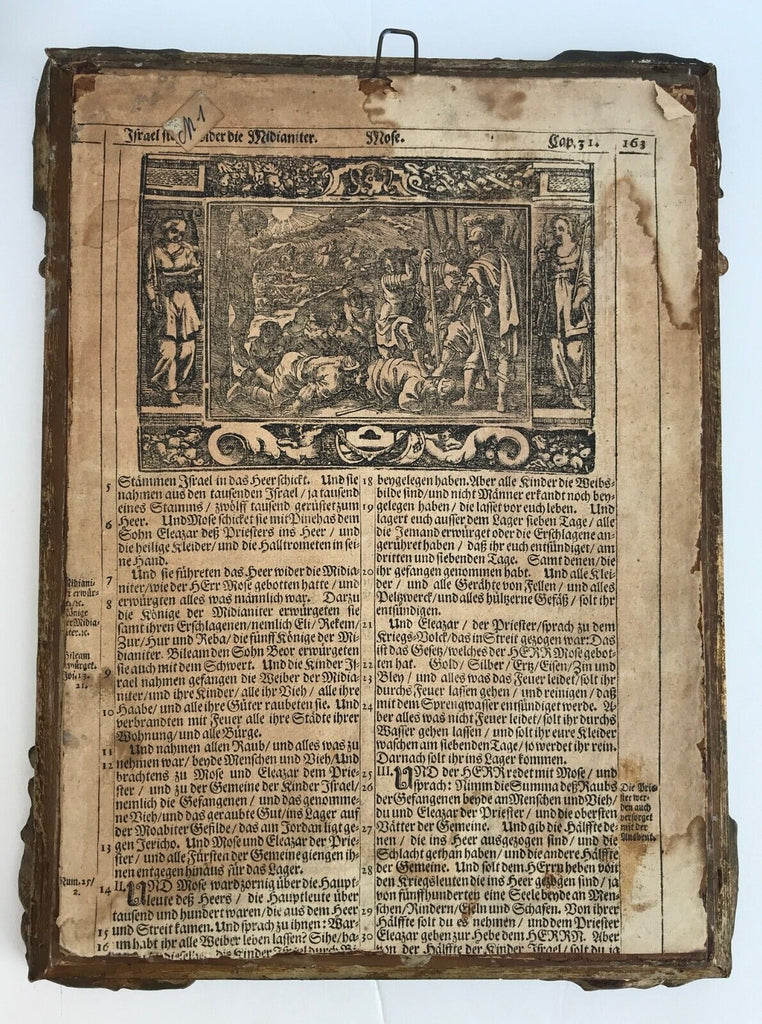 N 1
Israel wider die Midianiter. Mose. Cap. 31. 163
5 Stämmen Israel in das Heer schickt. Und sie
nahmen aus den tausenden Israel / ja tausend
eines Stamms / zwölff tausend gerüstet zum
6 Heer. Und Mose schicket sie mit Pinehas dem
Sohn Eleazar deß Priesters ins Heer / und
die heilige Kleider / und die Halltrometen in sei-
ne Hand.
7 Und sie führeten das Heer wider die Midia-
niter / wie der HErr Mose gebotten hatte / und
erwürgten alles was männlich war. Darzu
8 die Könige der Midianiter erwürgeten sie
samt ihren Erschlagenen / nemlich Evi / Rekem /
Zur / Hur und Reba / die fünff Könige der Mi-
dianiter. Bileam den Sohn Beor erwürgeten
9 sie auch mit dem Schwert. Und die Kinder Is-
rael nahmen gefangen die Weiber der Midia-
niter / und ihre Kinder / alle ihr Vieh / alle ihre
10 Haabe / und alle ihre Güter raubeten sie. Und
verbrandten mit Feuer alle ihre Städte ihrer
Wohnung / und alle Bürge.
11 Und nahmen allen Raub / und alles was zu
12 nehmen war / beyde Menschen und Vieh / Und
brachtens zu Mose und Eleazar dem Prie-
ster / und zu der Gemeine der Kinder Israel /
nemlich die Gefangenen / und das genomme-
ne Vieh / und das geraubt Gut / ins Lager auf
der Moabiter Gefilde / das am Jordan ligt ge-
13 gen Jericho. Und Mose und Eleazar der Prie-
ster / und alle Fürsten der Gemeine giengen ih-
nen entgegen hinaus für das Lager.
14 II. UND Mose ward zornig über die Haupt-
leute deß Heers / die Hauptleute über
tausend und hundert waren / die aus dem Heer
15 und Streit kamen. Und sprach zu ihnen: War-
16 um habt ihr alle Weiber leben lassen? Sihe / ha-
die Kinder Israel durch
18 beygelegen haben. Aber alle Kinder die Weibs-
bilde sind / und nicht Männer erkandt noch bey-
19 gelegen haben / die lasset vor euch leben. Und
lagert euch ausser dem Lager sieben Tage / alle
die Jemand erwürget oder die Erschlagene an-
gerühret haben / daß ihr euch entsündiget / am
dritten und siebenden Tage. Samt denen / die
20 ihr gefangen genommen habt. Und alle Klei-
der / und alle Gerähte von Fellen / und alles
Peltzwerck / und alles hültzerne Gefäß / solt ihr
entsündigen.
21 Und Eleazar / der Priester / sprach zu dem
Kriegs-Volck / das in Streit gezogen war: Das
ist das Gesetz / welches der HERR Mose gebot-
22 ten hat. Gold / Silber / Ertz / Eisen / Zin und
23 Bley / und alles was das Feuer leidet / solt ihr
durchs Feuer lassen gehen / und reinigen / daß
24 mit dem Sprengwasser entsündiget werde. A-
ber alles was nicht Feuer leidet / solt ihr durchs
Wasser gehen lassen / und solt ihr eure Kleider
waschen am siebenden Tage / so werdet ihr rein.
Darnach solt ihr ins Lager kommen.
25 III. UND der HERR redet mit Mose / und
26 sprach: Nimm die Summa deß Raubs
der Gefangenen beyde an Menschen und Vieh /
du und Eleazar der Priester / und die obersten
27 Vätter der Gemeine. Und gib die Hälffte de-
nen / die ins Heer ausgezogen sind / und die
Schlacht gethan haben / und die andere Hälffte
28 der Gemeine. Und solt dem HErrn heben von
den Kriegsleuten die ins Heer gezogen sind / ja
von fünffhunderten eine Seele beyde an Men-
29 schen / Rindern / Eseln und Schafen. Von ihrer
Hälffte solt du es nehmen / und dem Priester
30 Eleazar geben zur Hebe dem HERRN. Aber
von der Hälffte der Kinder Israel / solt du ja
Num. 25 /
2.
Die Prie-
ster wer-
den auch
versorget
mit der
Ausbeut.